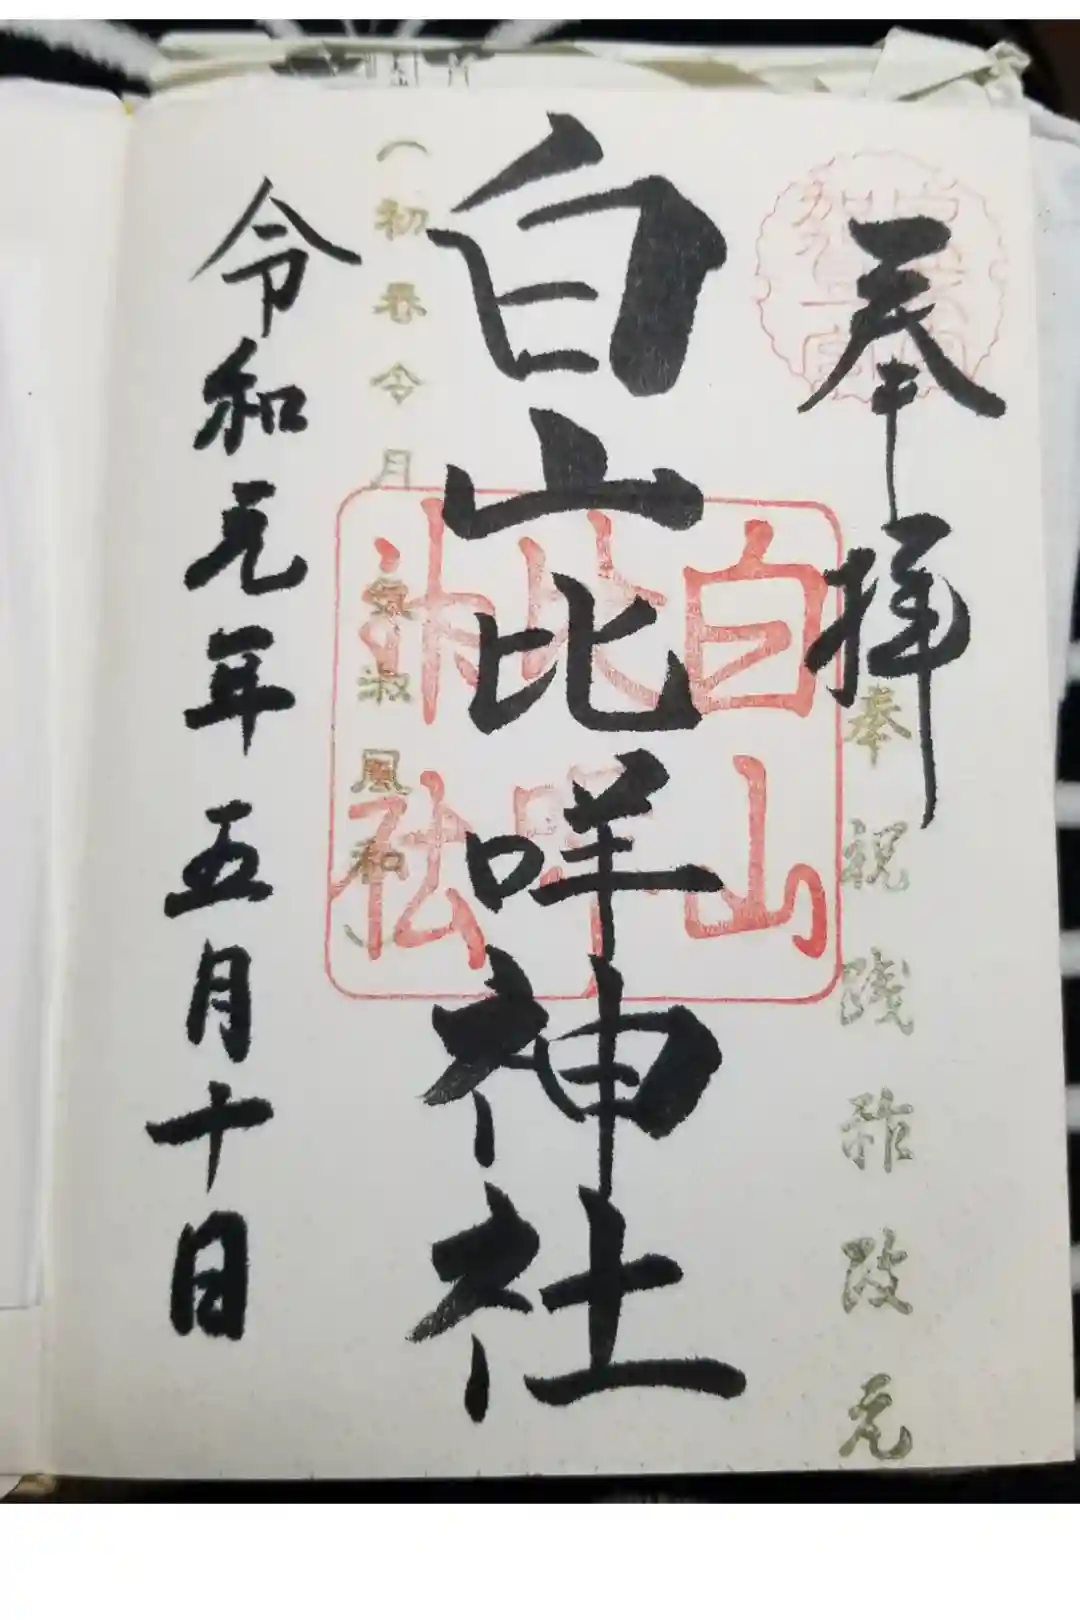 奉拝
奉祝 践祚改元
白山比咩神社
白山
比咩
神社
(初春令月 氣淑風和)
令和元年五月十日